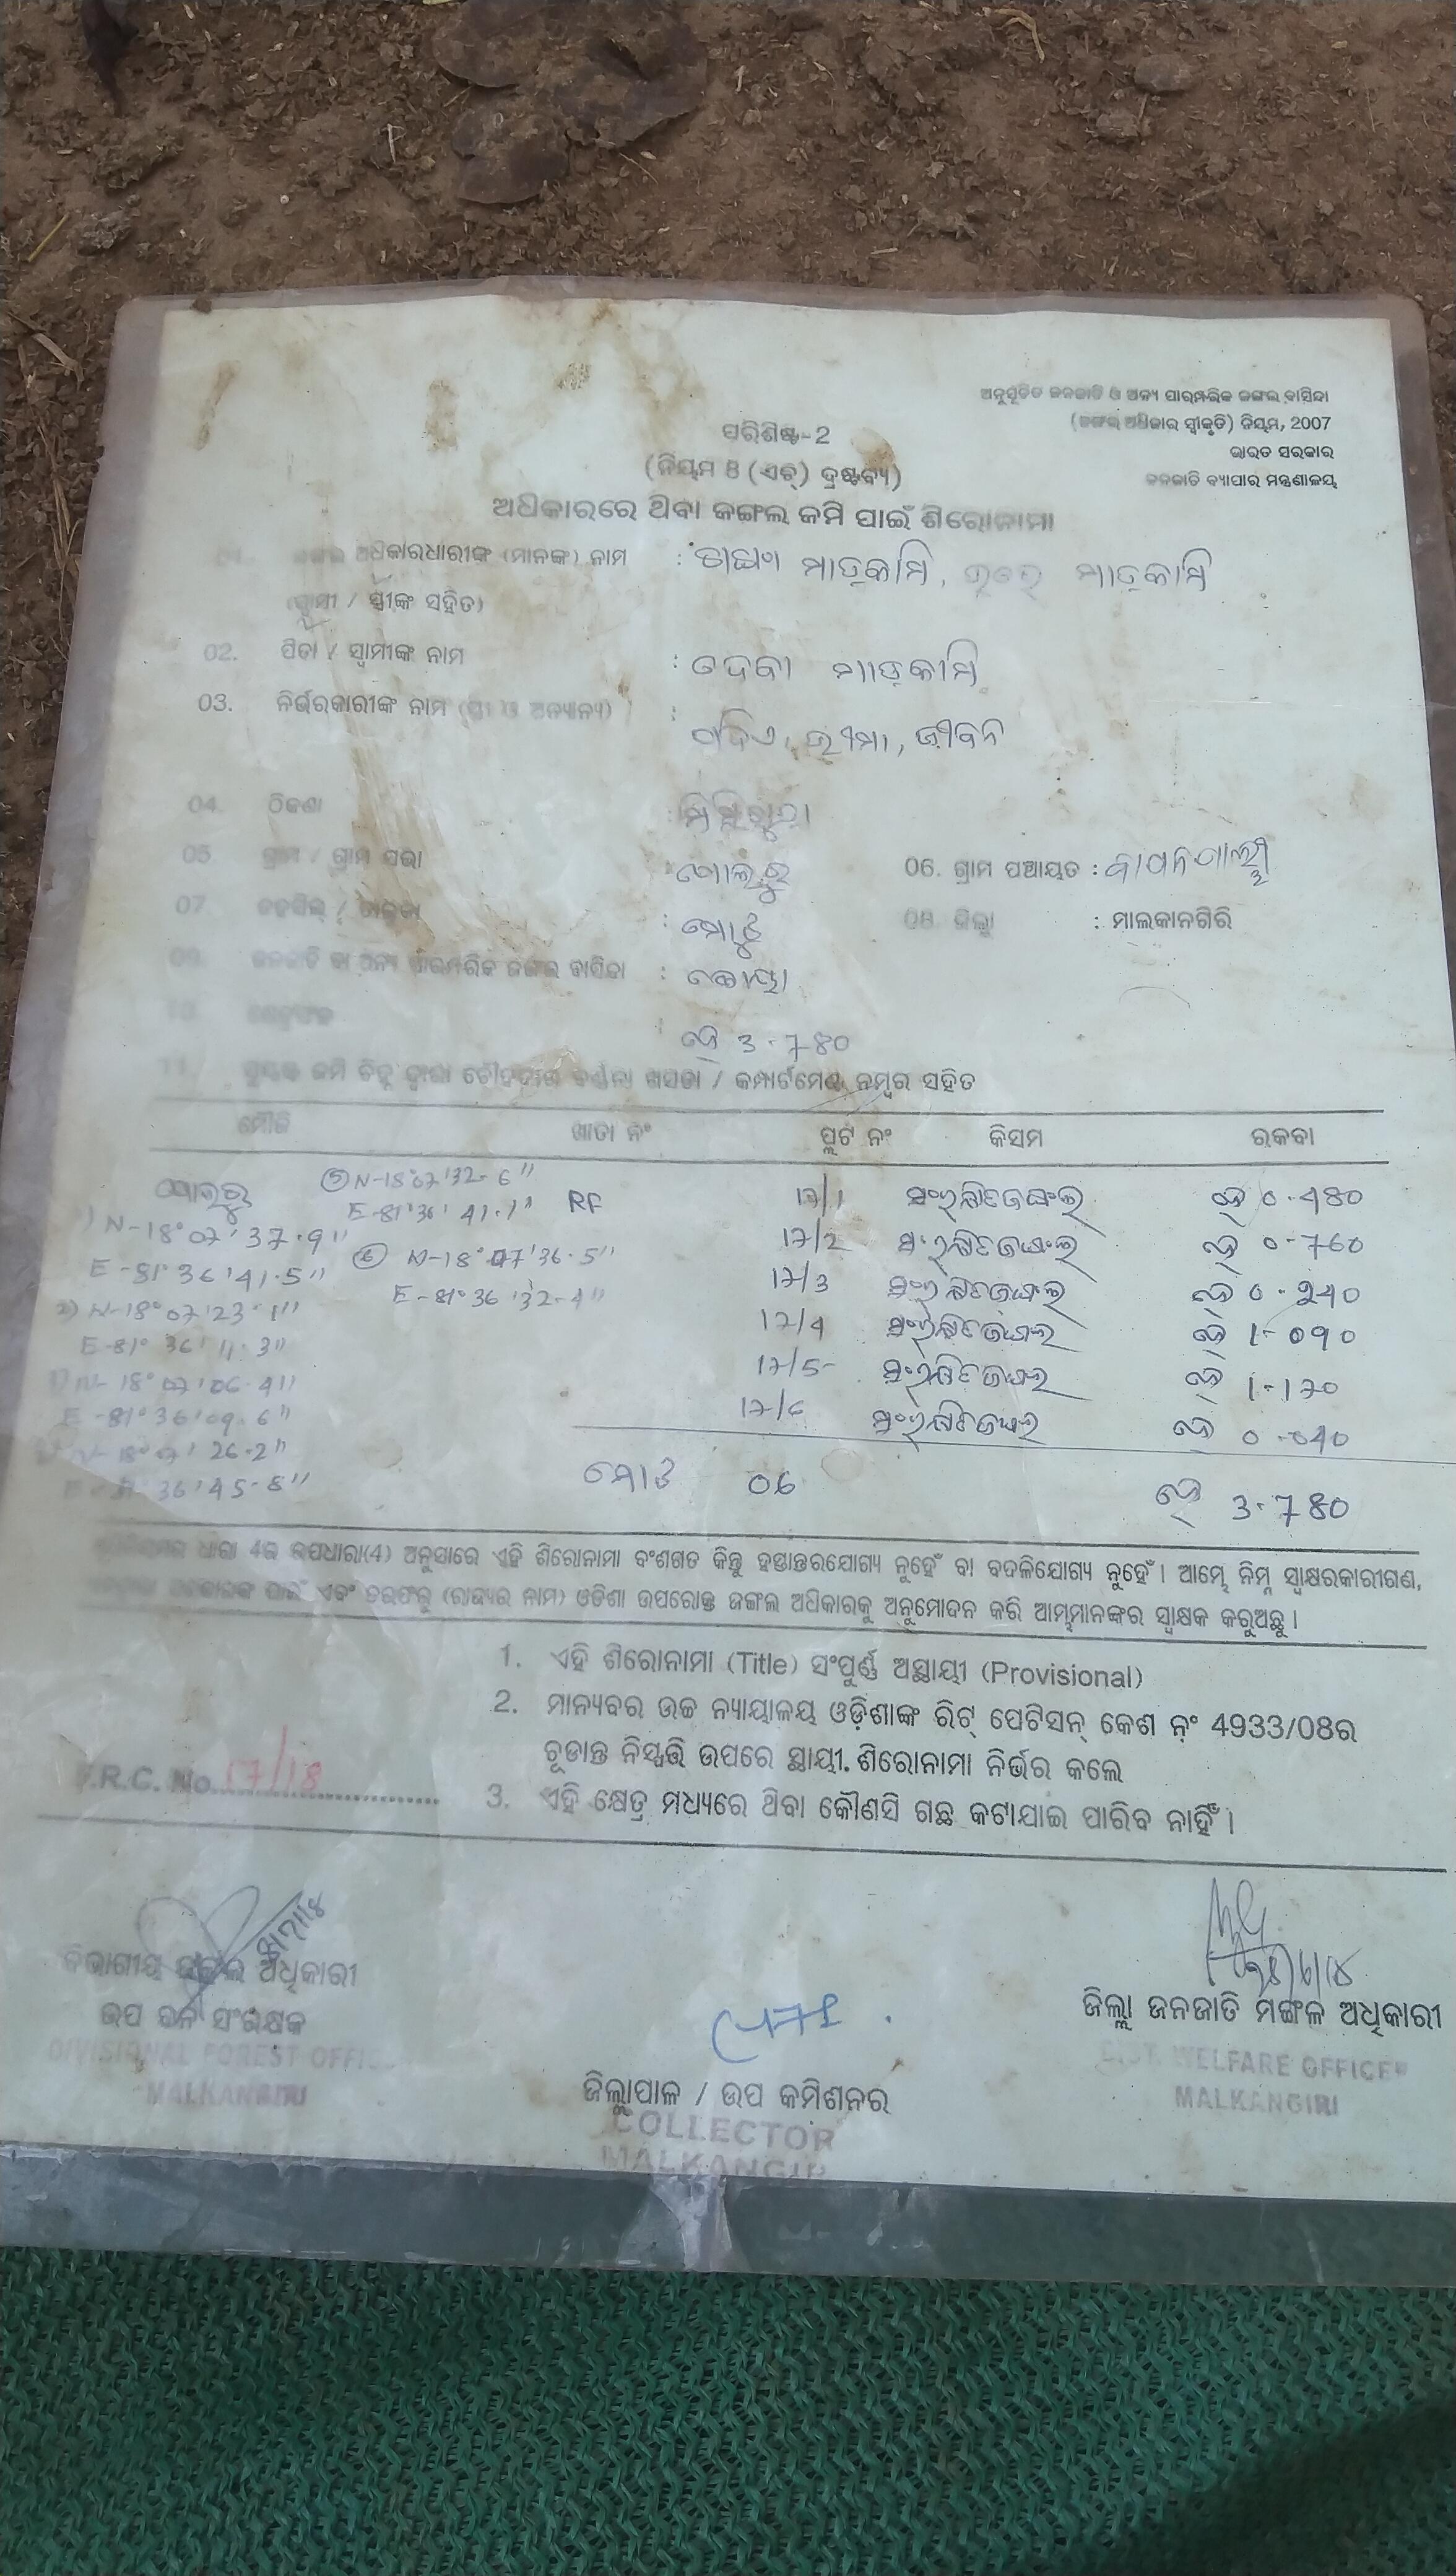 ଅନୁସୂଚିତ ଜନଜାତି ଓ ଅନ୍ୟ ପାରମ୍ପରିକ ଜଙ୍ଗଲ ବାସିନ୍ଦା
(ଜଙ୍ଗଲ ଅଧିକାର ସ୍ୱୀକୃତି) ନିୟମ, 2007
ଭାରତ ସରକାର
ଜନଜାତି ବ୍ୟାପାର ମନ୍ତ୍ରଣାଳୟ
ପରିଶିଷ୍ଟ-2
(ନିୟମ 8 (ଏଚ୍) ଦ୍ରଷ୍ଟବ୍ୟ)
ଅଧିକାରରେ ଥିବା ଜଙ୍ଗଲ ଜମି ପାଇଁ ଶିରୋନାମା
01. ଜଙ୍ଗଲ ଅଧିକାରଧାରୀଙ୍କ (ମାନଙ୍କ) ନାମ : ମାଡ଼କାମି, ମାଡ଼କାମି
(ସ୍ୱାମୀ / ସ୍ତ୍ରୀଙ୍କ ସହିତ)
02. ପିତା / ସ୍ୱାମୀଙ୍କ ନାମ : ଦେବା ମାଡ଼କାମି
03. ନିର୍ଭରକାରୀଙ୍କ ନାମ (ସ୍ତ୍ରୀ ଓ ଅନ୍ୟାନ୍ୟ) : ଭୀମା, ଜୀବନ
04. ଠିକଣା :
05. ଗ୍ରାମ / ଗ୍ରାମ ସଭା ପୋଲୁରୁ 06. ଗ୍ରାମ ପଞ୍ଚାୟତ :
07. ତହସିଲ୍ / ତାଲୁକା : ମୋଟୁ 08. ଜିଲ୍ଲା : ମାଲକାନଗିରି
09. ଜନଜାତି ବା ଅନ୍ୟ ପାରମ୍ପରିକ ଜଙ୍ଗଲ ବାସିନ୍ଦା : କୋୟା
10. କ୍ଷେତ୍ରଫଳ ହେ 3-780
11. ଜମି ଚିହ୍ନ ଦ୍ୱାରା ଚୌହଦୀର ବର୍ଣ୍ଣନା ଖସଡା / କମ୍ପାର୍ଟମେଣ୍ଟ ନମ୍ବର ସହିତ
ମୌଜି ଖାତା ନଂ ପ୍ଲଟ ନଂ କିସମ ରକବା
ପୋଲୁରୁ ⑤ N-18°07'32-6" 17/1 ସଂରକ୍ଷିତ ଜଙ୍ଗଲ ହେ 0-480
1) N-18°07'37.9" E-81°36'41.1" RF
E-81°36'41.5" ⑥ N-18°07'36.5" 17/2 ସଂରକ୍ଷିତ ଜଙ୍ଗଲ ହେ 0-760
2) N-18°07'23.1" E-81°36'32-4" 17/3 ସଂରକ୍ଷିତ ଜଙ୍ଗଲ ହେ 0-240
E-81°36'11.3" 17/4 ସଂରକ୍ଷିତ ଜଙ୍ଗଲ ହେ 1-090
N-18°07'06.4" 17/5 ସଂରକ୍ଷିତ ଜଙ୍ଗଲ ହେ 1-170
E-81°36'09.6" 17/6 ସଂରକ୍ଷିତ ଜଙ୍ଗଲ ହେ 0-040
N-18°07'26.2"
36'45-8" ମୋଟ 06 ହେ 3-780
ଧାରା 4ର ଉପଧାରା(4) ଅନୁସାରେ ଏହି ଶିରୋନାମା ବଂଶଗତ କିନ୍ତୁ ହସ୍ତାନ୍ତରଯୋଗ୍ୟ ନୁହେଁ ବା ବଦଳିଯୋଗ୍ୟ ନୁହେଁ । ଆମ୍ଭେ ନିମ୍ନ ସ୍ୱାକ୍ଷରକାରୀଗଣ,
ପାଇଁ ଏବଂ ତରଫରୁ (ରାଜ୍ୟର ନାମ) ଓଡିଶା ଉପରୋକ୍ତ ଜଙ୍ଗଲ ଅଧିକାରକୁ ଅନୁମୋଦନ କରି ଆମ୍ଭମାନଙ୍କର ସ୍ୱାକ୍ଷକ କରୁଅଛୁ ।
1. ଏହି ଶିରୋନାମା (Title) ସଂପୁର୍ଣ୍ଣ ଅସ୍ଥାୟୀ (Provisional)
2. ମାନ୍ୟବର ଉଚ୍ଚ ନ୍ୟାୟାଳୟ ଓଡ଼ିଶାଙ୍କ ରିଟ୍ ପେଟିସନ୍ କେଶ ନଂ 4933/08ର
ଚୂଡାନ୍ତ ନିସ୍ପତ୍ତି ଉପରେ ସ୍ଥାୟୀ. ଶିରୋନାମା ନିର୍ଭର କଲେ
F.R.C. No. 17/18
3. ଏହି କ୍ଷେତ୍ର ମଧ୍ୟରେ ଥିବା କୌଣସି ଗଛ କଟାଯାଇ ପାରିବ ନାହିଁ ।
ବିଭାଗୀୟ ଜଙ୍ଗଲ ଅଧିକାରୀ
ଉପ ବନ ସଂରକ୍ଷକ
DIVISIONAL FOREST OFFI
MALKANGIRI
ଜିଲ୍ଲାପାଳ / ଉପ କମିଶନର
COLLECTOR
MALKANGIR
ଜିଲ୍ଲା ଜନଜାତି ମଙ୍ଗଳ ଅଧିକାରୀ
DIST. WELFARE OFFICER
MALKANGIRI